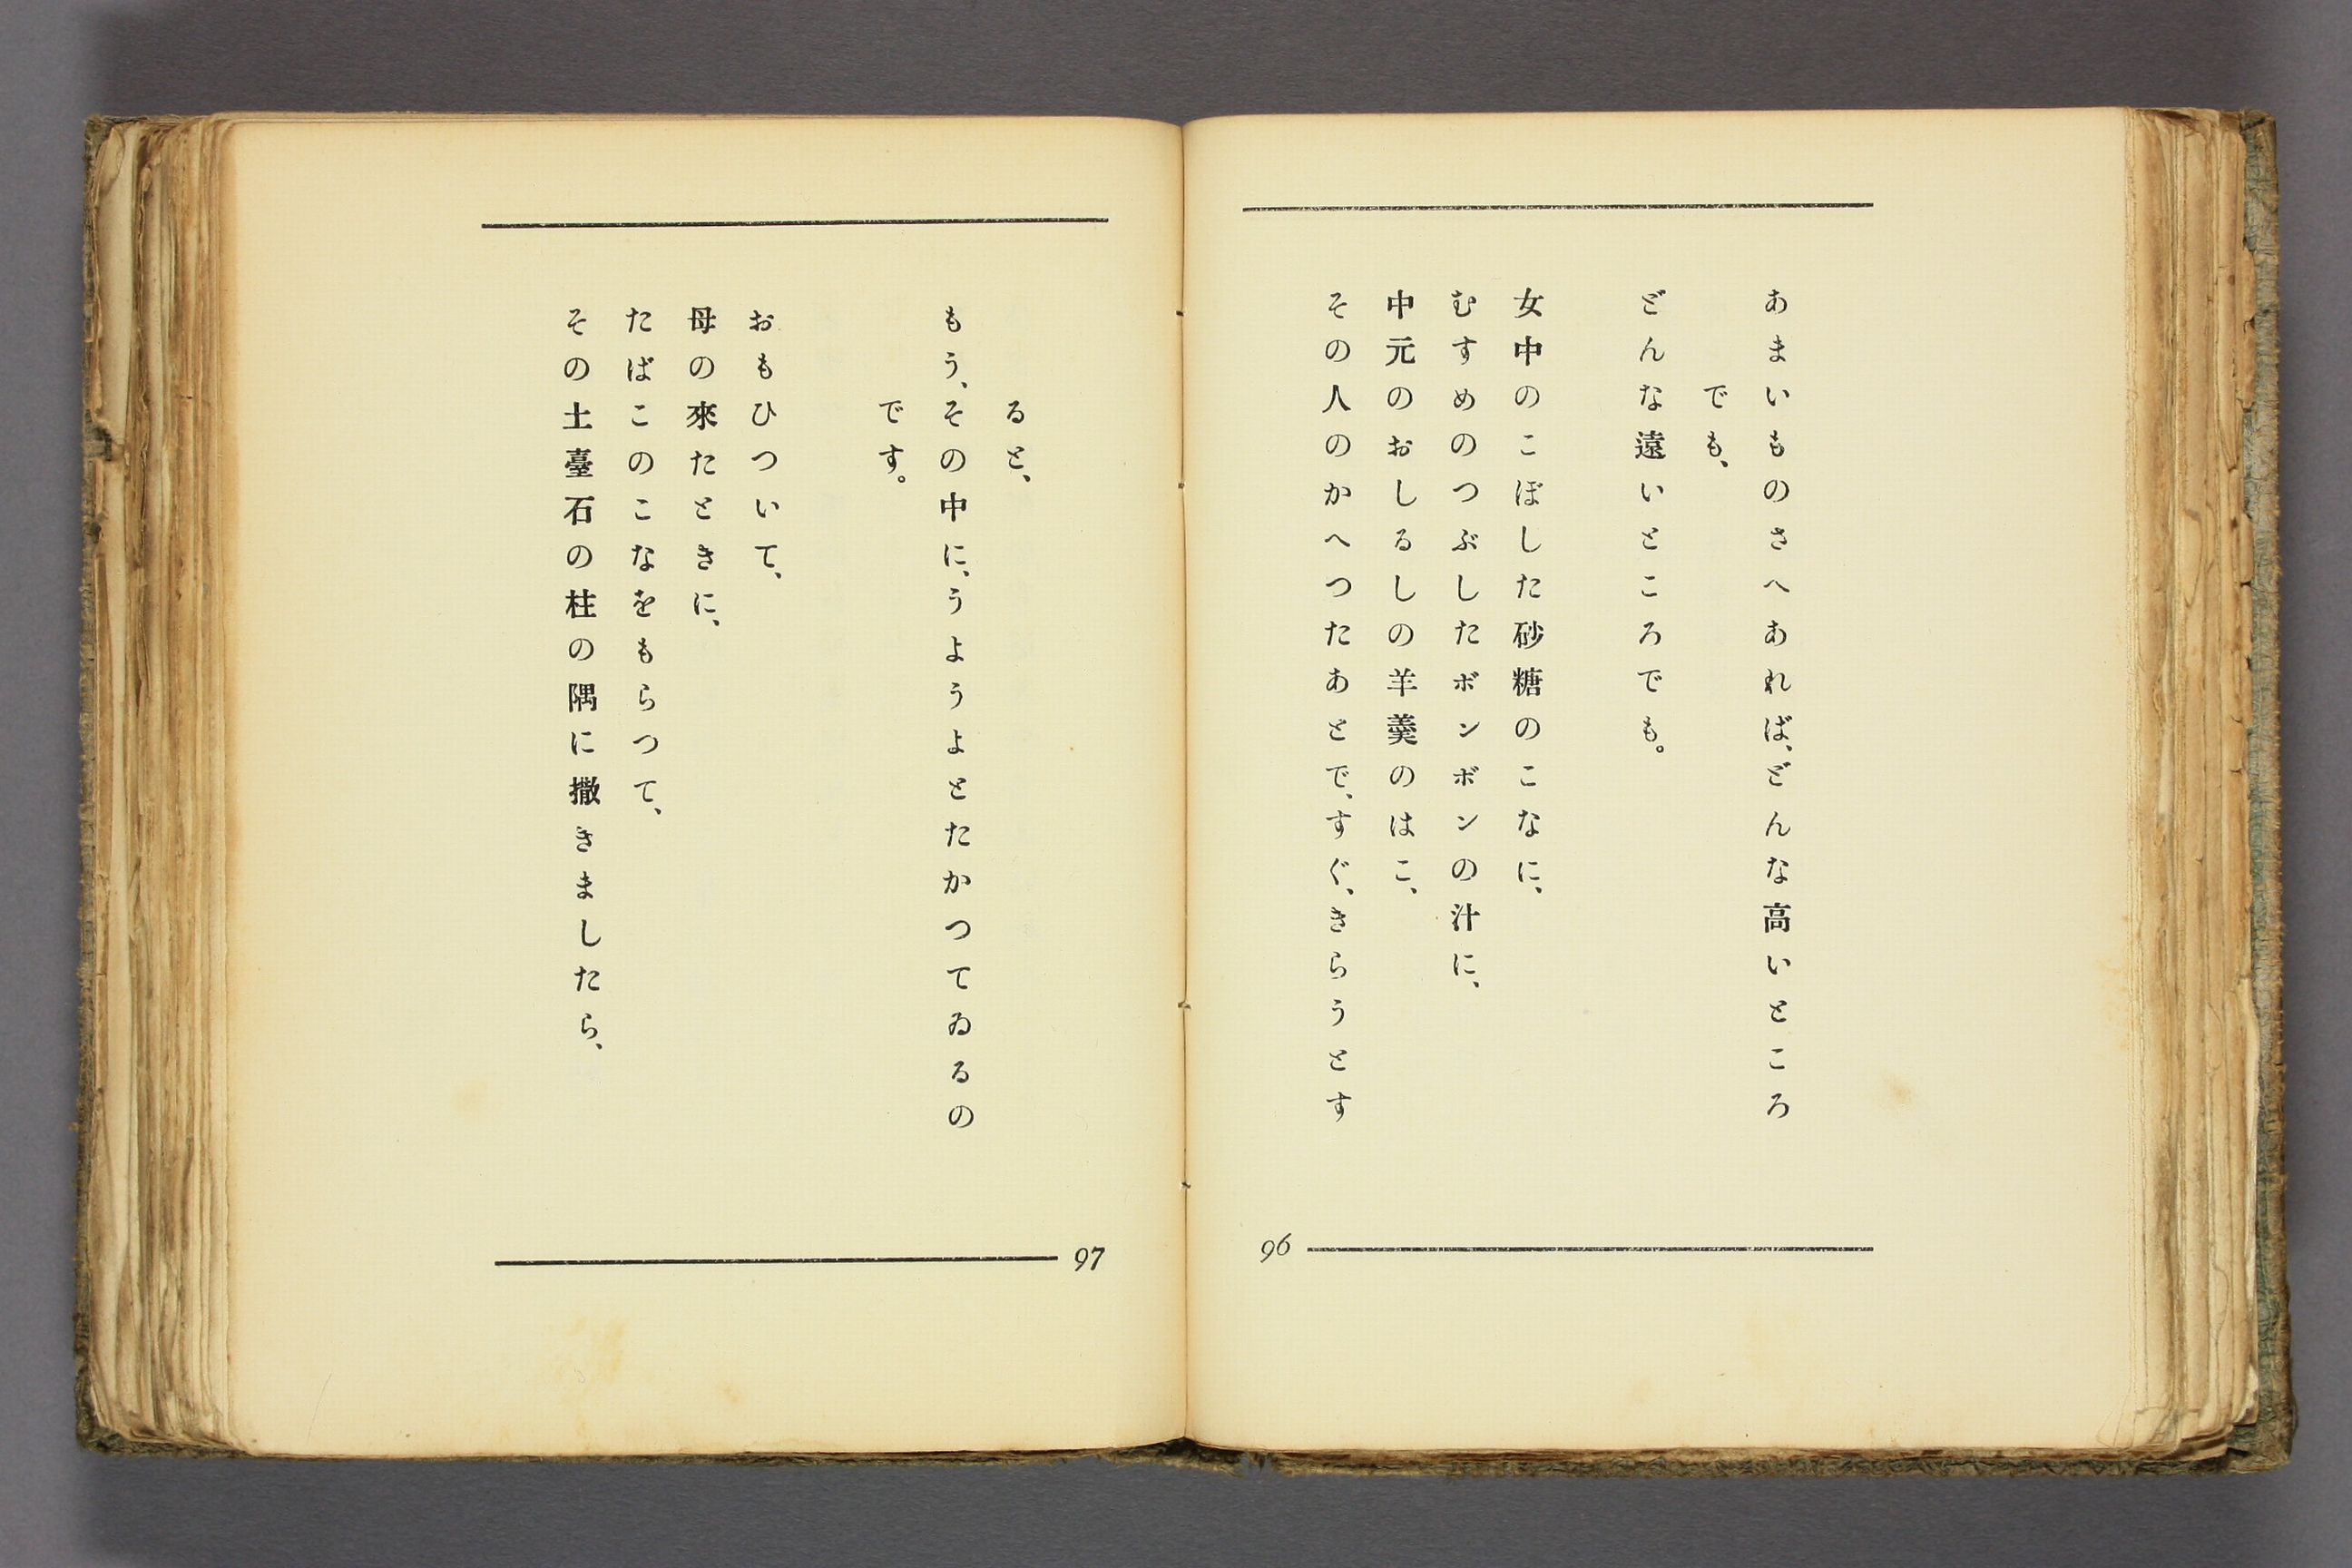 あまいものさへあれば、どんな高いところ
でも、
どんな遠いところでも。
女中のこぼした砂糖のこなに、
むすめのつぶしたボンボンの汁に、
中元のおしるしの羊羹のはこ、
その人のかへつたあとで、すぐ、きらうとす
96
ると、
もう、その中に、うようよとたかつてゐるの
です。
おもひついて、
母の來たときに、
たばこのこなをもらつて、
その土臺石の柱の隅に撒きましたら、
97